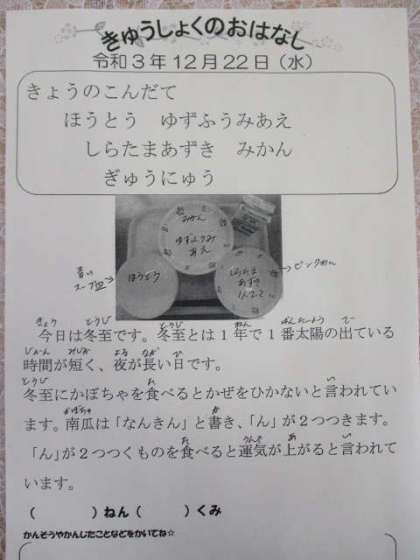 きゅうしょくのおはなし
令和3年12月22日（水）
きょうのこんだて
ほうとう　ゆずふうみあえ
しらたまあずき　みかん
ぎゅうにゅう
みかん
ゆずふうみ
あえ
ほうとう
しらたま
あずき
今日は冬至です。冬至とは1年で1番太陽の出ている
時間が短く、夜が長い日です。
冬至にかぼちゃを食べるとかぜをひかないと言われてい
ます。南瓜は「なんきん」と書き、「ん」が2つつきます。
「ん」が2つつくものを食べると運気が上がると言われて
います。
（　　　　）ねん（　　　　）くみ
かんそうやかんしたことなどをかいてね☆